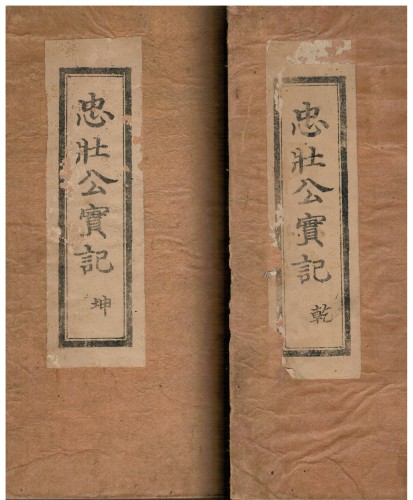 忠壯公實記 乾
忠壯公實記 坤